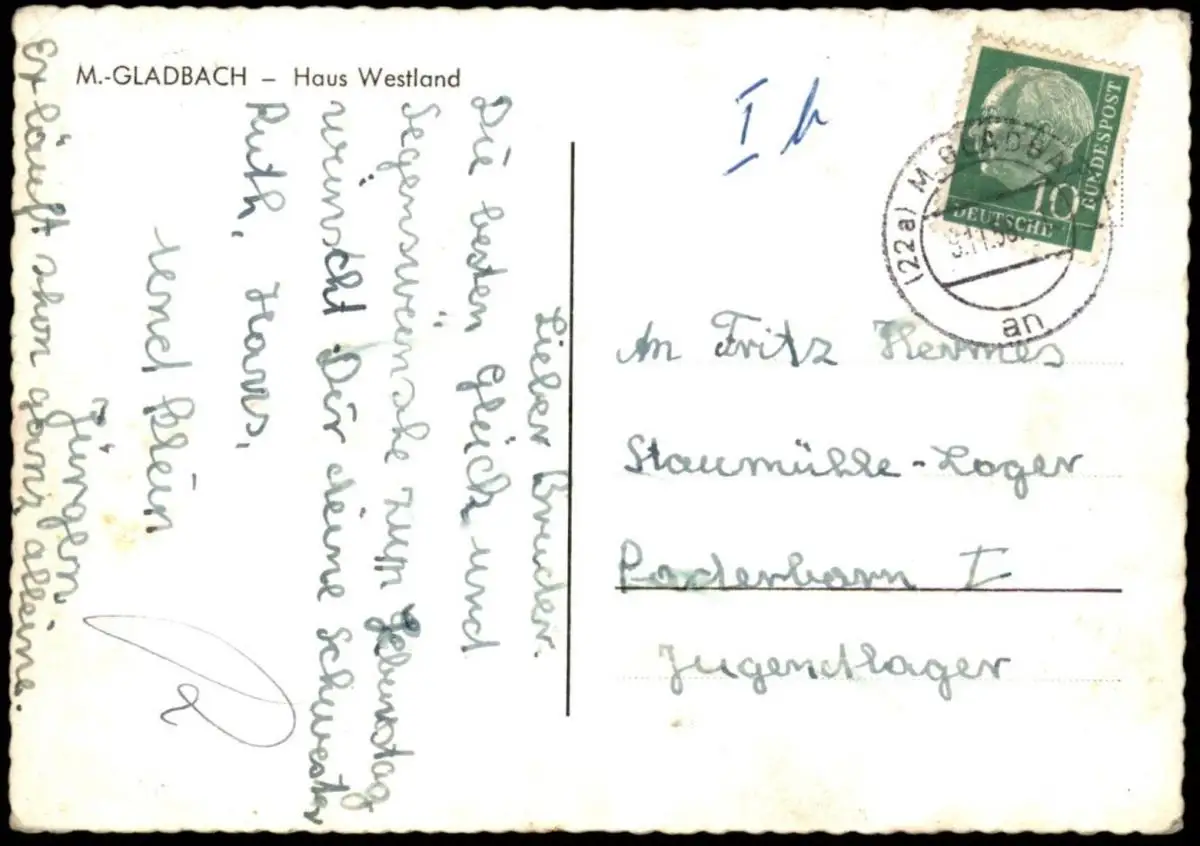 M.-GLADBACH – Haus Westland
Lieber Bruder.
Die besten Glück und
Segenswünsche zum Geburstag
wünscht Dir deine Schwester
Ruth, Hans,
und klein
Jürgen.
Er läuft shon ganz alleine.
I b
BUNDESPOST
10
DEUTSCHE
(22a) M. GLADBA
an
An Fritz Hermes
Staumühle-Lager
Paderborn I
Jugendlager